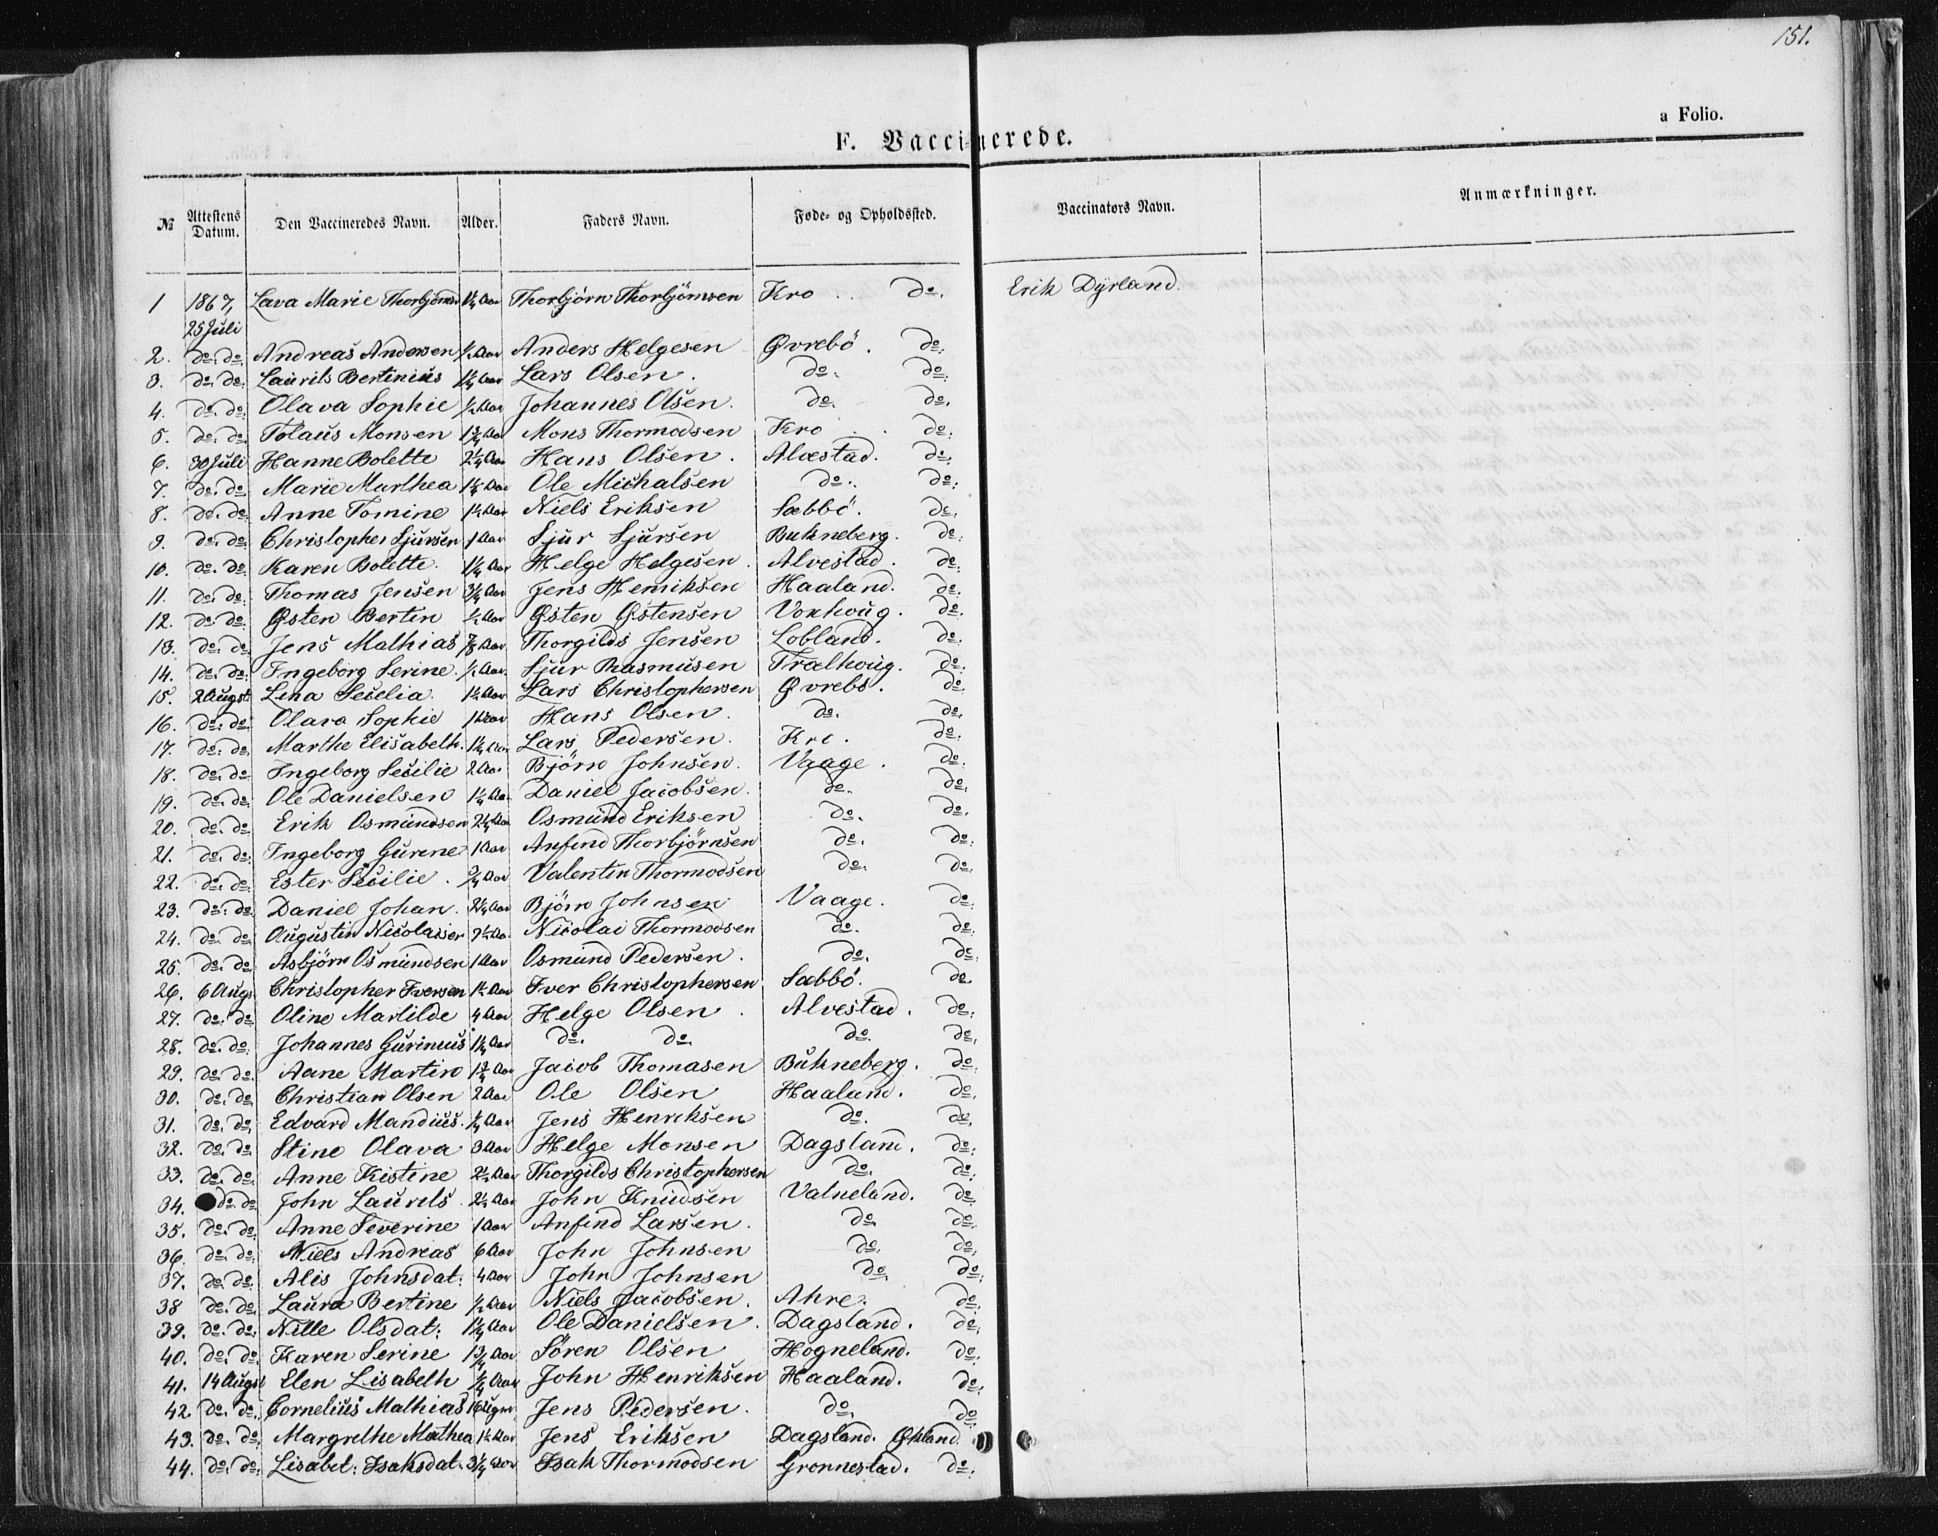 151.
a Folio.
F. Vaccinerede.
№ Attestens Datum. Den Vaccineredes Navn. Alder. Faders Navn. Føde- og Opholdssted. Vaccinators Navn. Anmærkninger.
1 1867, 25 Juli Lava Marie 1¼ Aar Thorbjørn Thorbjörnsen Kro do. Erik Dyrland.
2. do. do. Andreas Andersen Aar Anders Helgesen Øvrebö. do.
3. do. do. Laurits Bertinius Aar Lars Olsen. do. do.
4. do. do. Olava Sophie Aar Johannes Olsen. do. do.
5. do. do. Tolaus Monsen 1¾ Aar Mons Thormodsen Kro do.
6. 30 Juli Hanne Bolette 2¼ Aar Hans Olsen. Alvestad. do.
7. do. do. Marie Marthea Aar Ole Michalsen do. do.
8. do. do. Anne Tomine Aar Niels Eriksen Sæbbö. do.
9. do. do. Christopher Sjursen 1 Aar Sjur Sjursen Bukneberg. do.
10. do. do. Karen Bolette. Aar Helge Helgesen. Alvestad. do.
11. do. do. Thomas Jensen Aar Jens Henriksen Haaland. do.
12. do. do. Østen Bertin Aar Østen Østensen Voxhoug. do.
13. do. do. Jens Mathias ⅞ Aar Thorgilds Jensen Lobland. do.
14. do. do. Ingeborg Serine. Aar. Sjur Rasmusen Tralhoug. do.
15. 2 Augst Lina Secelia. Aar Lars Christophersen Øvrebö. do.
16. do. do. Olava Sophie Aar Hans Olsen. do. do.
17. do. do. Marthe Elisabeth. Aar Lars Pedersen. Kro. do.
18. do. do. Ingeborg Secilie 2 Aar Björn Johnsen. Vaage. do.
19. do. do. Ole Danielsen Aar Daniel Jacobsen. do. do.
20. do. do. Erik Osmundsen Aar Osmund Eriksen do. do.
21. do. do. Ingeborg Gurene 1 Aar Anfind Thorbjørnsen do. do.
22. do. do. Ester Secilie. Aar Valentin Thormodsen do. do.
23. do. do. Daniel Johan. Aar Björn Johnsen Vaage. do.
24. do. do. Augustin Nicolaisen Nicolai Thormodsen do. do.
25. do. do. Asbjørn Osmundsen 1 Aar Osmund Pedersen. do. do.
26. 6 Augs. Christopher Iversen Aar Iver Christophersen Sæbbö. do.
27. do. do. Oline Martilde 4 Aar Helge Olsen. Alvestad. do.
28. do. do. Johannes Gurinius Aar do. do. do. do.
29. do. do. Aane Martin Aar Jacob Thomasen Bukneberg. do.
30. do. do. Christian Olsen 2 Aar Ole Olsen Haaland. do.
31. do. do. Edvard Mandius. Aar Jens Henriksen do. do.
32. do. do. Stine Olava 3 Aar Helge Monsen Dagsland. do.
33. do. do. Anne Kistine Aar Thorgilds Christophersen do. do.
34. do. do. John Laurits. Aar John Knudsen Valneland. do.
35. do. do. Anne Severine 1 Aar Anfind Larsen. do. do.
36. do. do. Niels Andreas 6 Aar John Johnsen do. do.
37. do. do. Alis Johnsdat: 4 Aar John Johnsen do. do.
38 do. do. Laura Bertine Aar Niels Jacobsen. Ahre. do.
39. do. do. Nille Olsdat: Aar Ole Danielsen. Dagsland. do.
40. do. do. Karen Serine 1¾ Aar Sören Olsen Hogneland. do.
41. 14 Augst Elen Lisabeth Aar John Henriksen Haaland. do.
42. do. do. Cornelius Mathias Jens Pedersen. do. do.
43. do. do. Margrethe Mathea Aar Jens Eriksen Dagsland. Økland.
44. do. do. Lisabet: Isaksdat. Aar Isak Thormodsen Gronnestad. do.